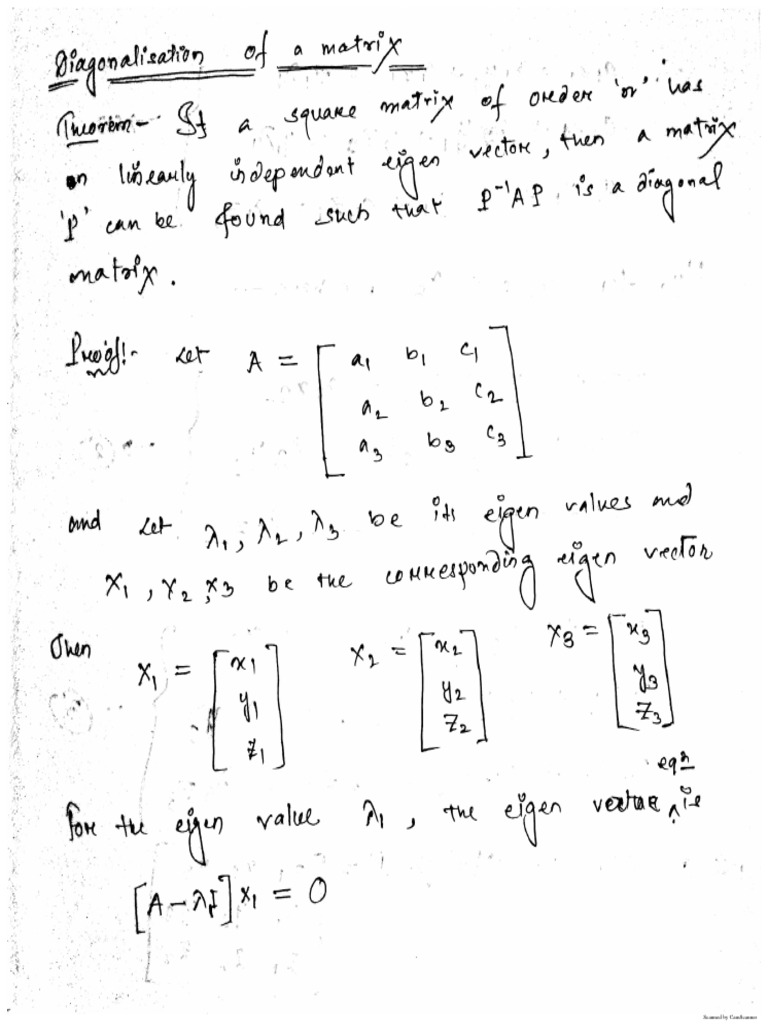 Diagonalisation of a matrix
Theorem - If a square matrix of order 'n' has
n linearly independent eigen vector, then a matrix
'P' can be found such that P⁻¹AP is a diagonal
matrix.
Proof:- Let A = [a₁ b₁ c₁
a₂ b₂ c₂
a₃ b₃ c₃]
and Let λ₁, λ₂, λ₃ be its eigen values and
X₁, X₂, X₃ be the corresponding eigen vector
Then X₁ = [x₁ y₁ z₁] X₂ = [x₂ y₂ z₂] X₃ = [x₃ y₃ z₃]
For the eigen value λ₁, the eigen vector eqn is
[A - λ₁I] X₁ = 0
Scanned by CamScanner